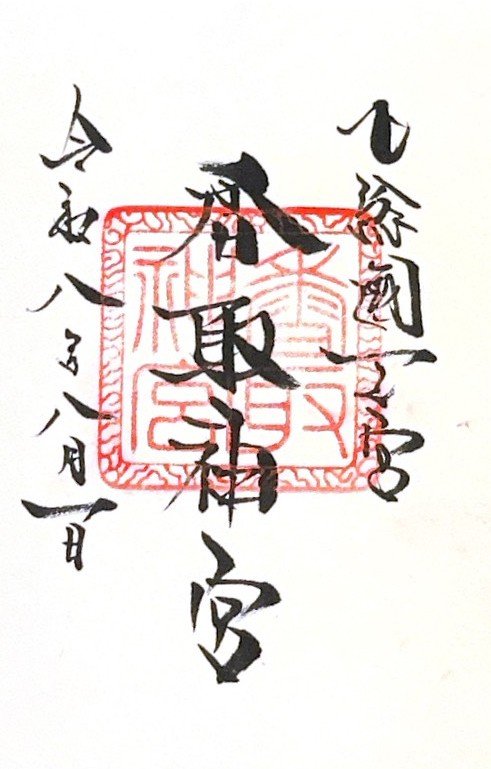 下総國一之宮
香取神宮
令和八年八月一日
香取
神宮